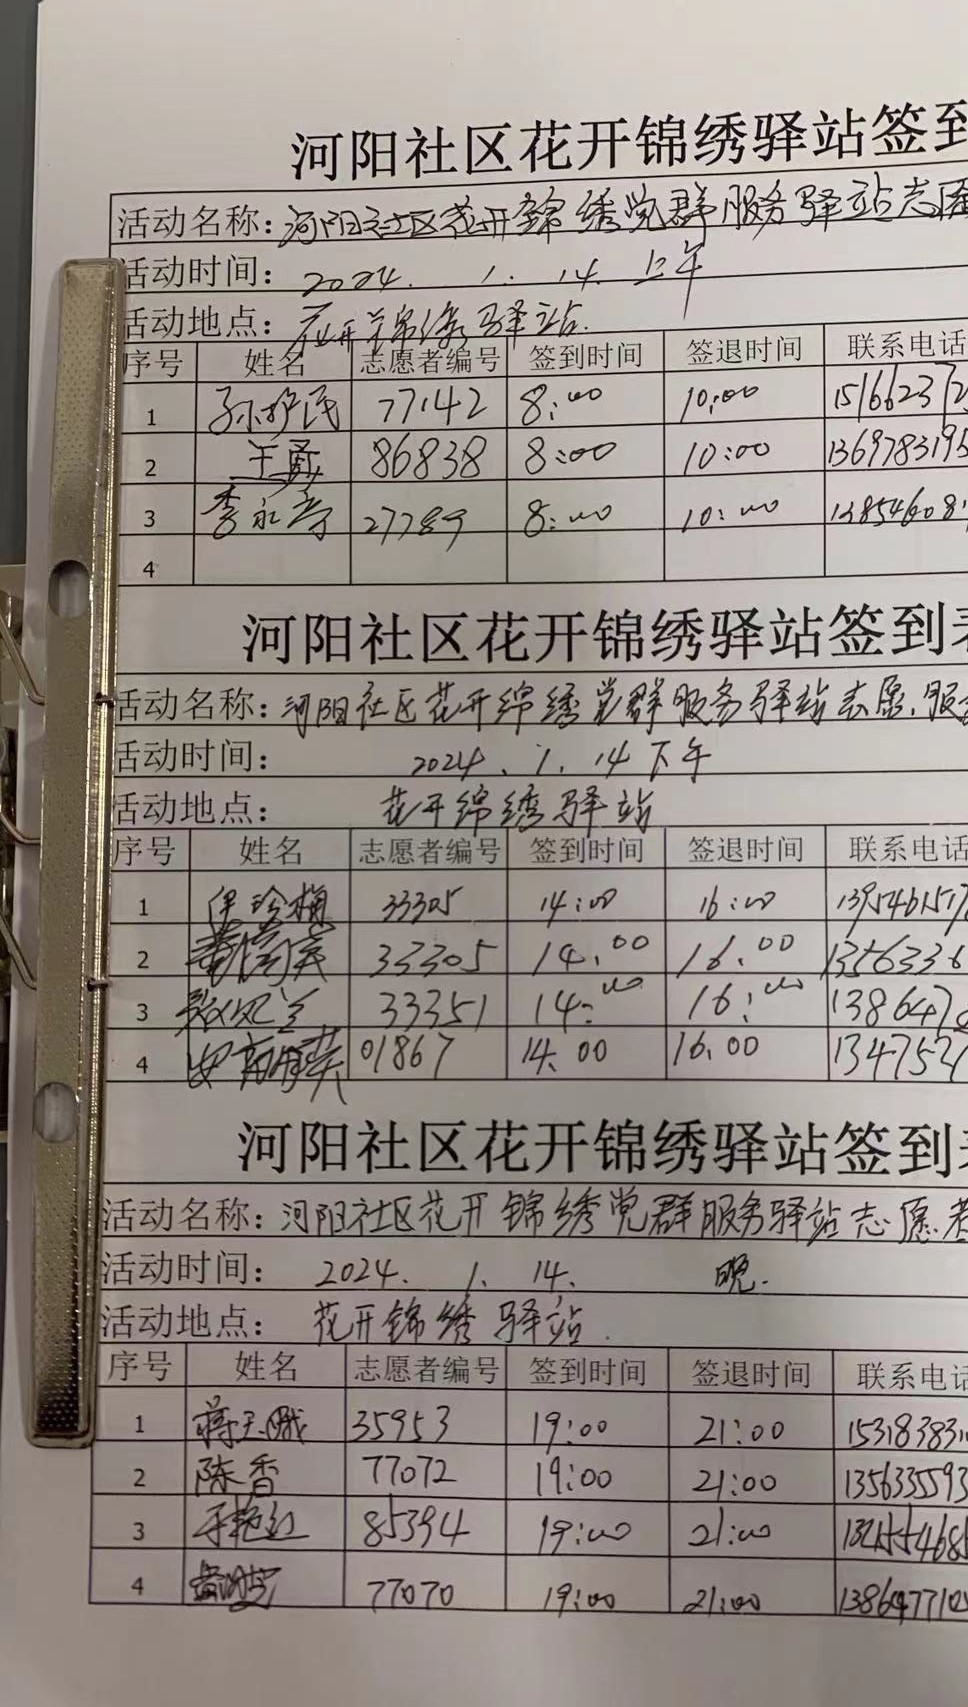 河阳社区花开锦绣驿站签到
活动名称：河阳社区花开锦绣党群服务驿站志愿
活动时间：2024. 1. 14. 上午
活动地点：花开锦绣驿站.
序号 姓名 志愿者编号 签到时间 签退时间 联系电话
1 孙护民 77142 8:00 10:00 15166237
2 王勇 86838 8:00 10:00 1369783195
3 李永 27789 8:00 10:00
4
河阳社区花开锦绣驿站签到表
活动名称：河阳社区花开绵绣党群服务驿站志愿.服
活动时间：2024.1.14下午
活动地点：花开绵绣驿站
序号 姓名 志愿者编号 签到时间 签退时间 联系电话
1 33305 14:00 16:00 139546151
2 33305 14.00 16.00 1356336
3 33351 14:00 16:00 138647
4 01867 14.00 16.00 134752
河阳社区花开锦绣驿站签到表
活动名称：河阳社区花开锦绣党群服务驿站志愿者
活动时间：2024. 1. 14. 晚.
活动地点：花开锦绣驿站.
序号 姓名 志愿者编号 签到时间 签退时间 联系电话
1 蒋玉娥 35953 19:00 21:00 15318383
2 陈香 77072 19:00 21:00 1356335593
3 85394 19:00 21:00
4 77070 19:00 21:00 138647710